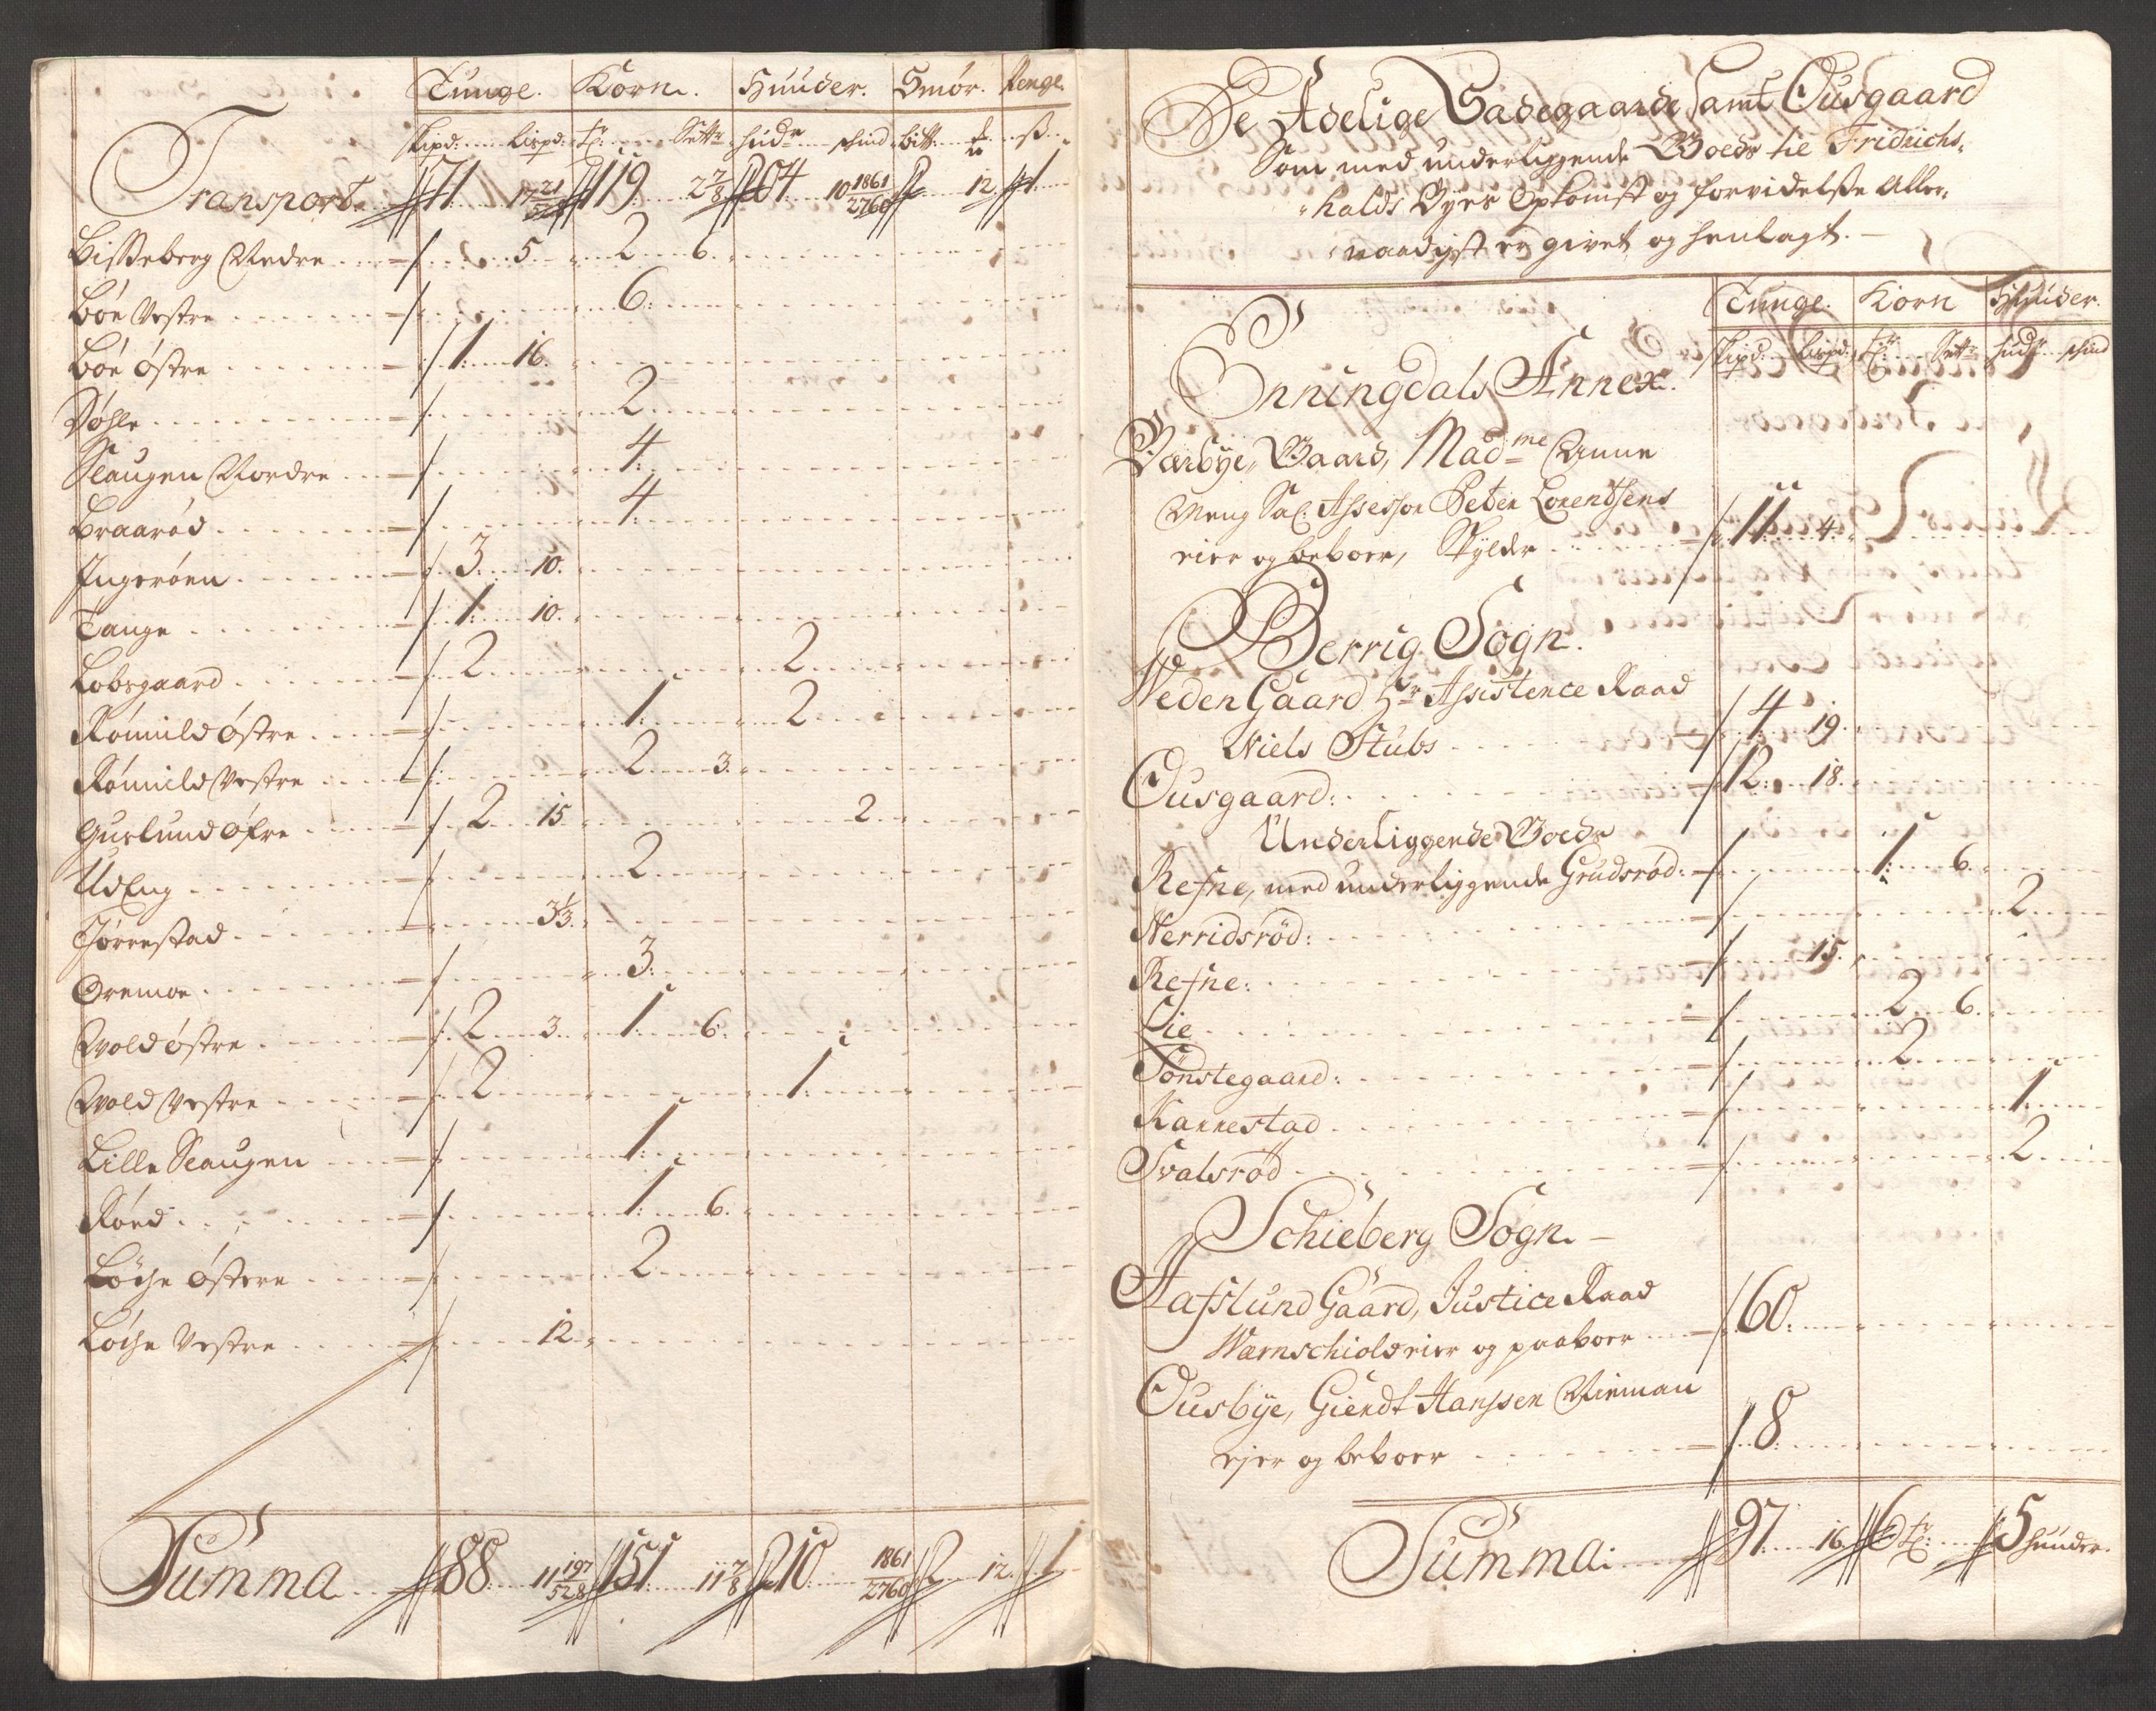 Tunge. Korn. Huuder. Smør. Penge.
Skpd: Lispd: Tr: Sett: hudr skind bitt: ß
Transport 71 17 21/528 119 2 7/8 204 10 1861/2760 2 12 1
Hisseberg Nedre 5 2 6
Bøe Vestre 6
Bøe Østre 1 16
Døhle 2
Slaugen Nordre 4
Braarød 4
Ingerøen 3 10
Tange 1 10
Lobsgaard 2 2
Rømmild Østre 1 2
Rømmild Vestre 2 3
Guslund Øfre 2 15 2
UdEng 2
Thørrestad 3 1/3
Oremoe 3
Wold Østre 2 3 1 6
Wold Vestre 2 1
Lille Slaugen 1
Røed 1 6
Løche Østere 2
Løche Vestre 12
Summa 88 11 197/528 151 11 7/8 210 1861/2760 2 12 1
De Adelige Sædegaarde Samt Ousgaard
Som med underliggende Goeds til Fridrichs-
halds Byes Opkomst og forvidelße Aller-
naadigst er givet og henlagt.
Tunge. Korn Huuder.
Skpd: Lispd: Tr: Sett: hudr skind
Enningdals Annex.
Berbye, Gaard, Madme Anne
Meng Sal: Assessor Peter Lorentsens
eier og beboer, Skylder 11 4
Berrig Sogn.
Weden Gaard Hr Assistence Raad
Niels Stubs 4 19
Ousgaard: 12 18
Underliggende Goeds
Refne, med underliggende Grudsrød: 1 6
Nerridsrød: 2
Refne: 15
Lie 2 6
Tønstegaard: 2
Kannestad 1
Svalsrød 2
Schieberg Sogn.
Hafslund Gaard, Justice Raad
Wærnschiold eier og paaboer 60
Ousbye, Giendt Hanssen Nieman
ejer og beboer 8
Summa: 97 16 6 tr: 5 huuder.